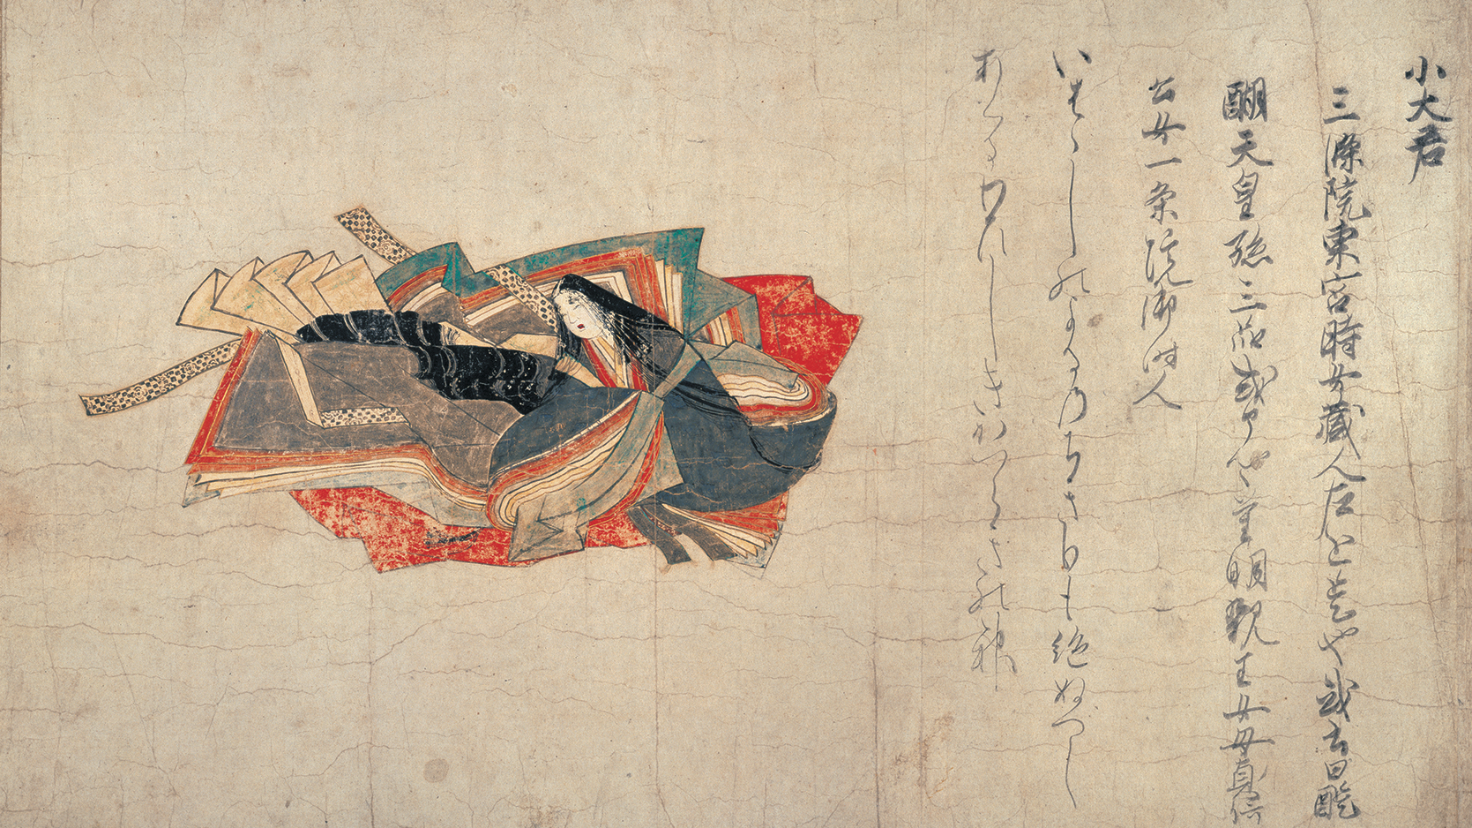 小大君
三條院東宮時女蔵人左近是也或書曰醍
醐天皇孫三品式部卿重明親王女母貞信
公女一条院御時人
いはゝしのよるのちきりも絶ぬへし
あくるわひしきかつらきの神